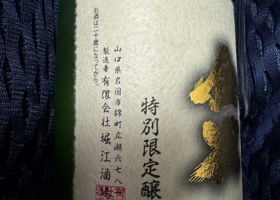 特別限定醸
山口県岩国市錦町広瀬六七八
製造者 有限会社堀江酒場
お酒は二十歳になってから。